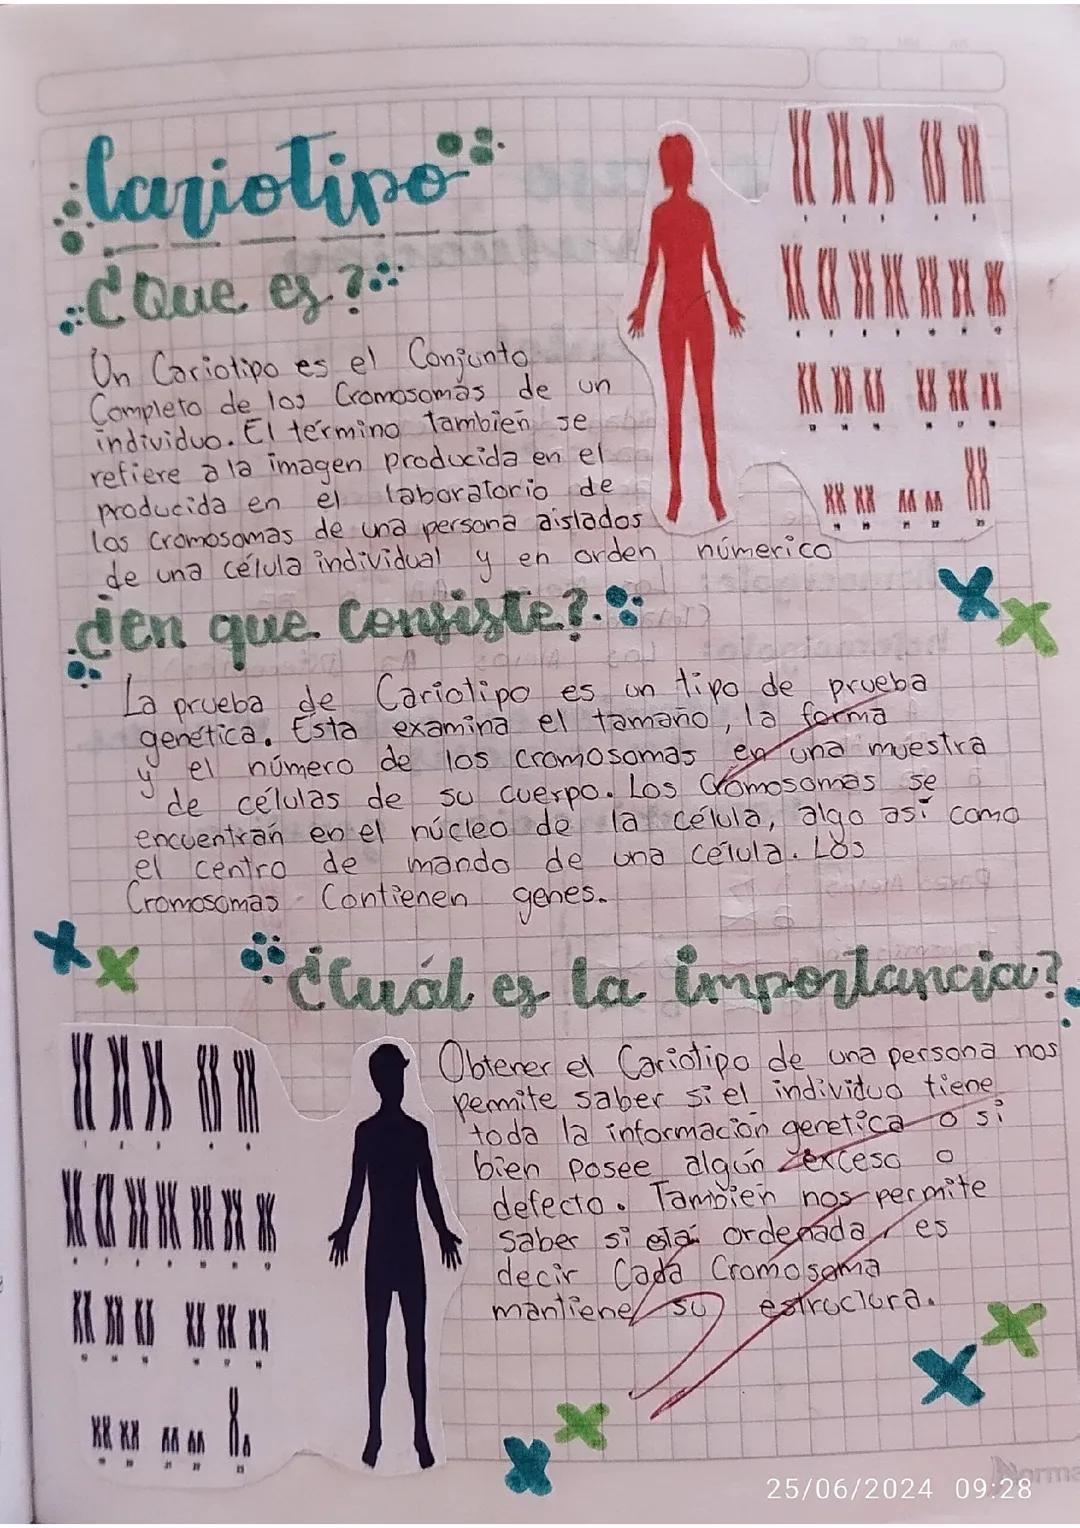 Cariotipo
¿Que es?
Un Cariotipo es el Conjunto
Completo de los Cromosomas de un
individuo. El término también se
refiere a la imagen producida en el
producida en el laboratorio de
las cromosomas de una persona aislados
de una célula individual y en orden númerico
¿En que consiste?
La prueba de Cariotipo es un tipo de prueba
genética. Esta examina el tamaño, la forma
y el número de los cromosomas en una muestra
de células de su cuerpo. Los Cromosomas se
encuentran en el núcleo de la célula, algo así como
el centro de mando de una célula. Los
Cromosomas Contienen genes.
¿Cuál es la importancia?
Obtener el Cariotipo de una persona nos
permite saber si el individuo tiene
toda la información genética o si
bien posee algún exceso o
defecto. También nos permite
saber si está ordenada, es
decir Cada Cromosoma
mantiene su estructura.
Norma
25/06/2024 09:28